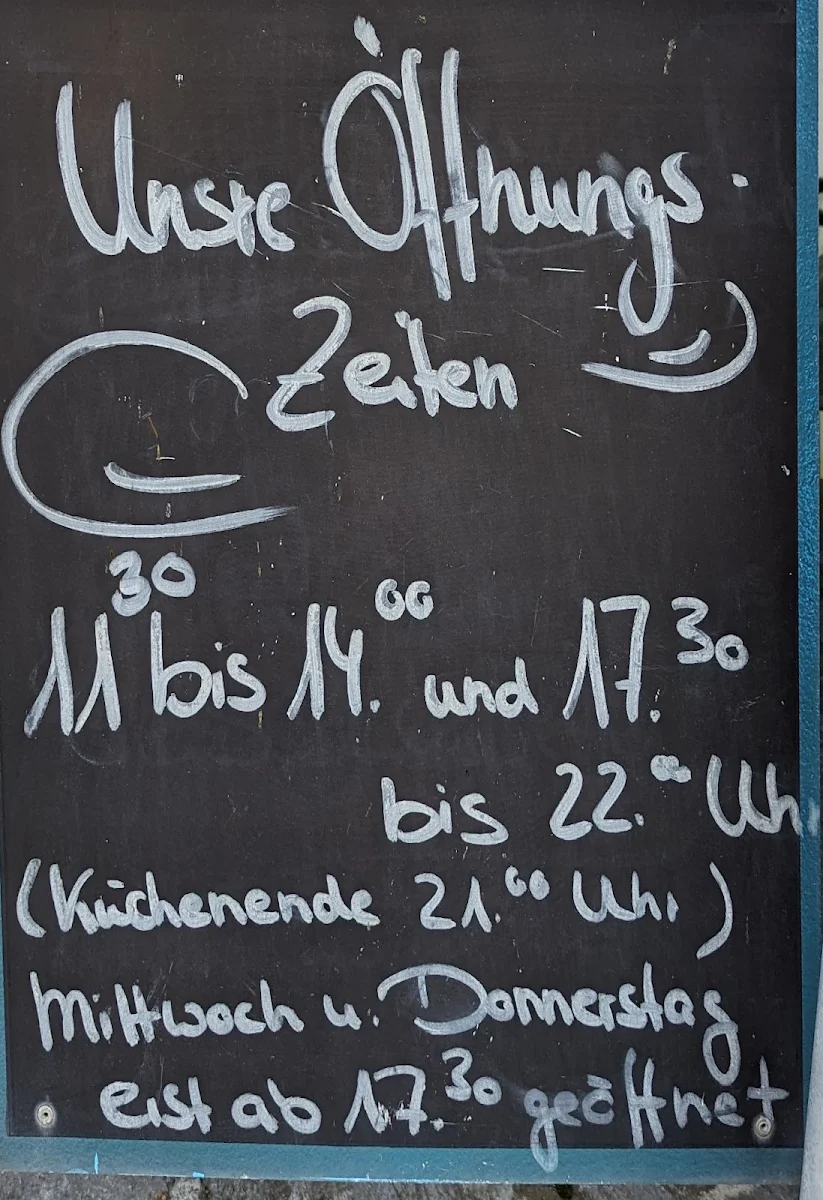 Unsre Öffnungs-
Zeiten
11³⁰ bis 14.⁰⁰ und 17.³⁰
bis 22.⁰⁰ Uhr
(Küchenende 21.⁰⁰ Uhr)
Mittwoch u. Donnerstag
erst ab 17.³⁰ geöffnet